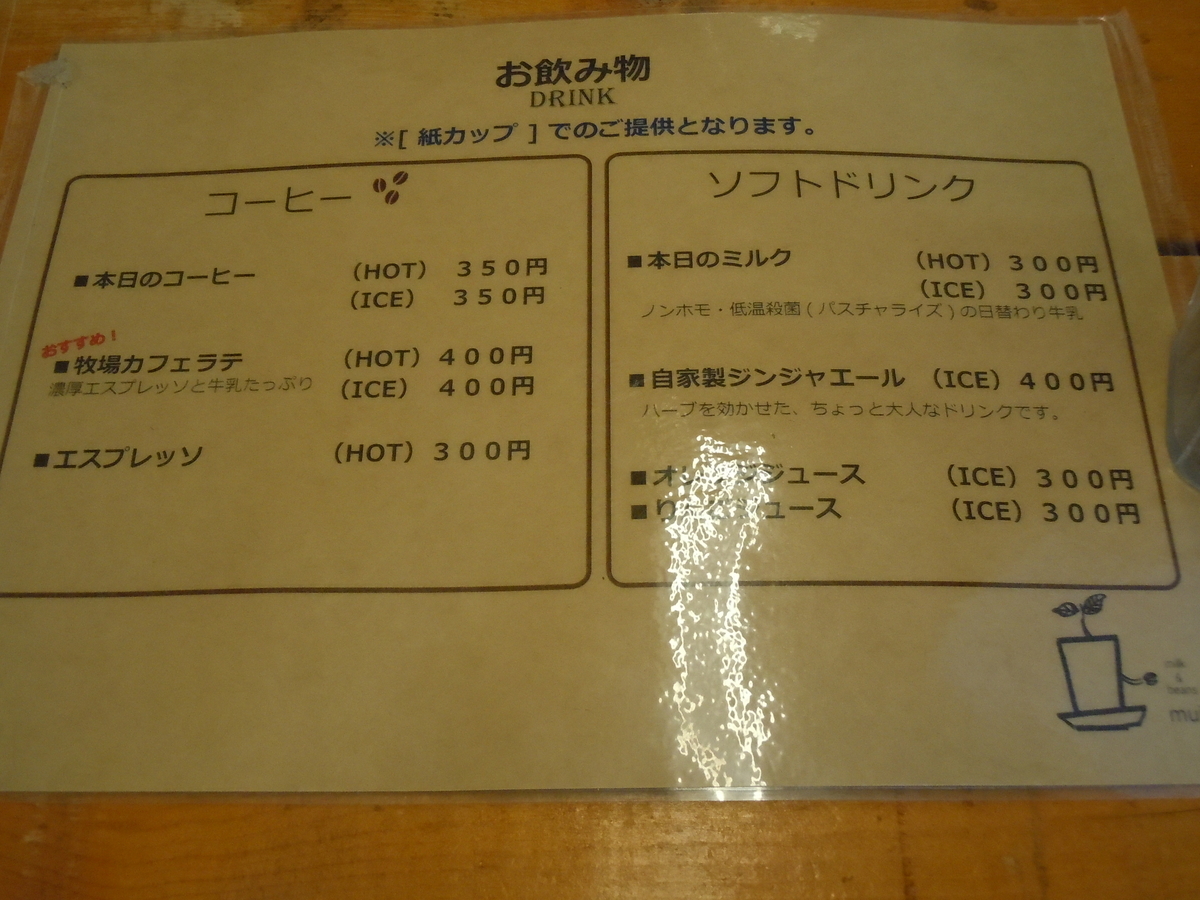 お飲み物
DRINK
※[ 紙カップ ] でのご提供となります。
コーヒー
■本日のコーヒー (HOT) 350円
(ICE) 350円
おすすめ!
■牧場カフェラテ (HOT) 400円
濃厚エスプレッソと牛乳たっぷり (ICE) 400円
■エスプレッソ (HOT) 300円
ソフトドリンク
■本日のミルク (HOT) 300円
(ICE) 300円
ノンホモ・低温殺菌(パスチャライズ)の日替わり牛乳
■自家製ジンジャエール (ICE) 400円
ハーブを効かせた、ちょっと大人なドリンクです。
■オレンジジュース (ICE) 300円
■りんごジュース (ICE) 300円
milk
&
beans
mu